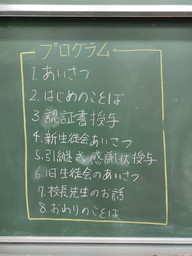 プログラム
1. あいさつ
2. はじめのことば
3 認証書授与
4. 新生徒会あいさつ
5. 引継ぎ 感謝状授与
6. 旧生徒会のあいさつ
7. 校長先生のお話
8. おわりのことば